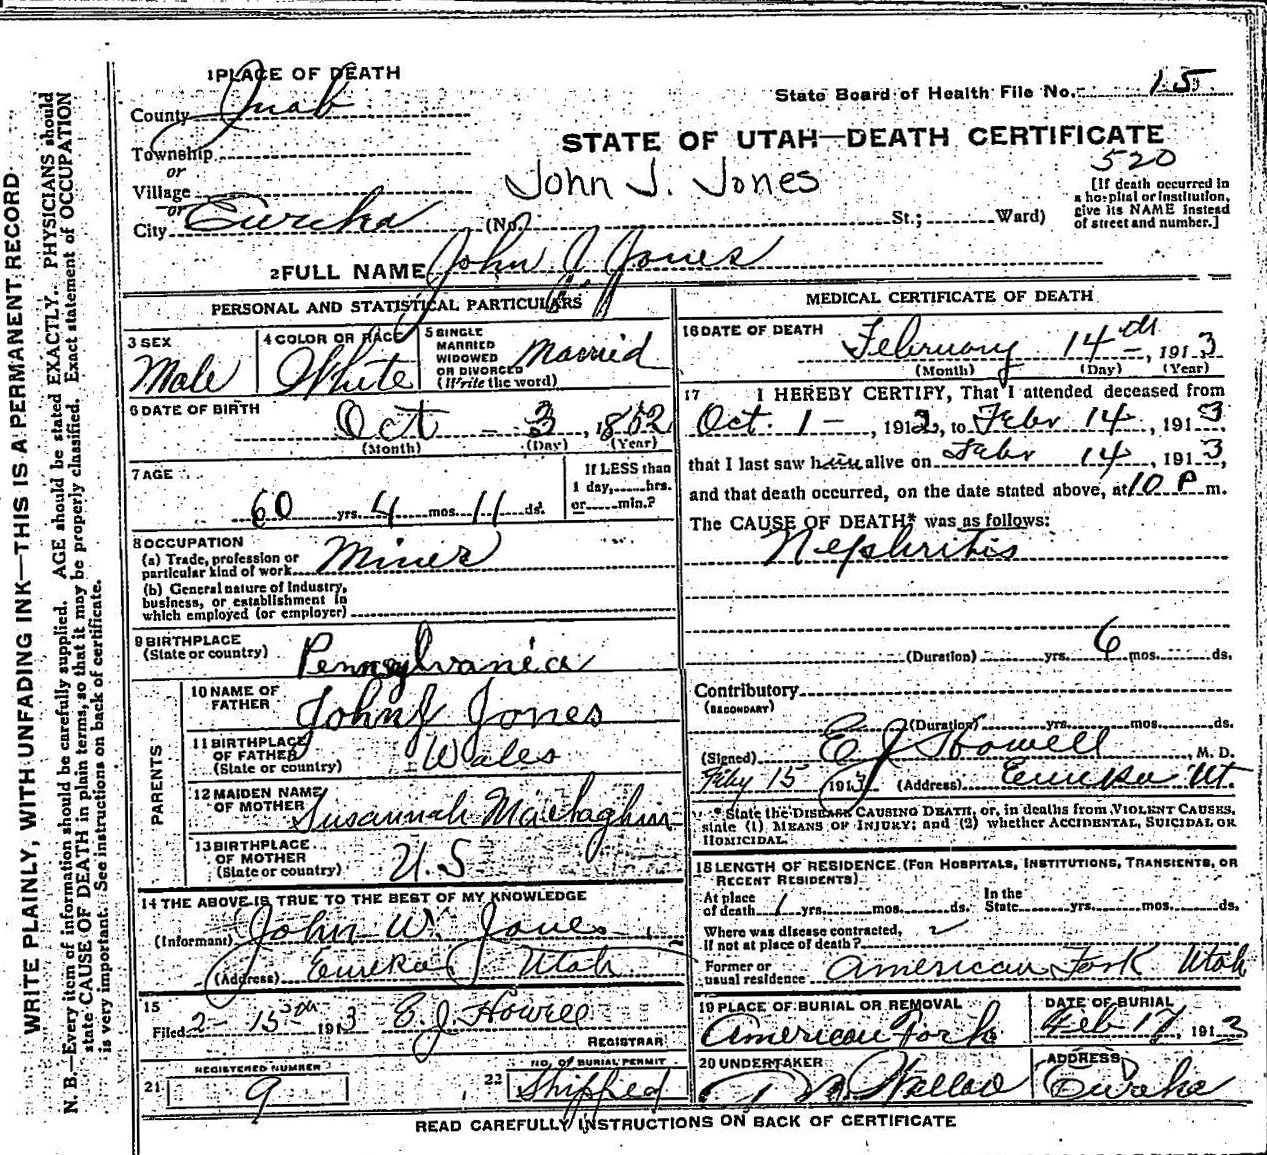 WRITE PLAINLY, WITH UNFADING INK—THIS IS A PERMANENT RECORD
N. B.—Every item of information should be carefully supplied. AGE should be stated EXACTLY. PHYSICIANS should
state CAUSE OF DEATH in plain terms, so that it may be properly classified. Exact statement of OCCUPATION
is very important. See instructions on back of certificate.
1 PLACE OF DEATH
County Juab
State Board of Health File No. 15
STATE OF UTAH—DEATH CERTIFICATE
Township
or
Village
or
City Eureka (No. St.; Ward)
John J. Jones
520
[If death occurred in
a hospital or institution,
give its NAME instead
of street and number.]
2 FULL NAME John J Jones
PERSONAL AND STATISTICAL PARTICULARS
3 SEX
Male
4 COLOR OR RACE
White
5 SINGLE
MARRIED
WIDOWED
OR DIVORCED
(Write the word)
Married
6 DATE OF BIRTH
Oct - 3, 1852
(Month) (Day) (Year)
7 AGE
60 yrs. 4 mos. 11 ds.
If LESS than
1 day, hrs.
or min.?
8 OCCUPATION
(a) Trade, profession or
particular kind of work Miner
(b) General nature of industry,
business, or establishment in
which employed (or employer)
9 BIRTHPLACE
(State or country)
Pennsylvania
PARENTS
10 NAME OF
FATHER
John J Jones
11 BIRTHPLACE
OF FATHER
(State or country)
Wales
12 MAIDEN NAME
OF MOTHER
Susannah
13 BIRTHPLACE
OF MOTHER
(State or country)
U.S
14 THE ABOVE IS TRUE TO THE BEST OF MY KNOWLEDGE
(Informant) John W. Jones
(Address) Eureka Utah
15
Filed 2-15th 1913 E. J. Howell
REGISTRAR
REGISTERED NUMBER
21 9
NO. OF BURIAL PERMIT
22 Shipped
MEDICAL CERTIFICATE OF DEATH
16 DATE OF DEATH
February 14th, 1913
(Month) (Day) (Year)
17 I HEREBY CERTIFY, That I attended deceased from
Oct. 1 -, 1912, to Febr 14, 1913
that I last saw him alive on Febr 14, 1913,
and that death occurred, on the date stated above, at 10 P m.
The CAUSE OF DEATH* was as follows:
Nephritis
(Duration) yrs. 6 mos. ds.
Contributory
(SECONDARY)
(Duration) yrs. mos. ds.
(Signed) E J Howell, M. D.
Feby 15 1913 (Address) Eureka Ut.
* State the DISEASE CAUSING DEATH, or, in deaths from VIOLENT CAUSES,
state (1) MEANS OF INJURY; and (2) whether ACCIDENTAL, SUICIDAL OR
HOMICIDAL.
18 LENGTH OF RESIDENCE (FOR HOSPITALS, INSTITUTIONS, TRANSIENTS, OR
RECENT RESIDENTS)
At place
of death 1 yrs. mos. ds.
In the
State yrs. mos. ds.
Where was disease contracted,
if not at place of death?
Former or
usual residence American Fork Utah
19 PLACE OF BURIAL OR REMOVAL
American Fork
DATE OF BURIAL
Feb 17, 1913
20 UNDERTAKER
ADDRESS
Eureka
READ CAREFULLY INSTRUCTIONS ON BACK OF CERTIFICATE